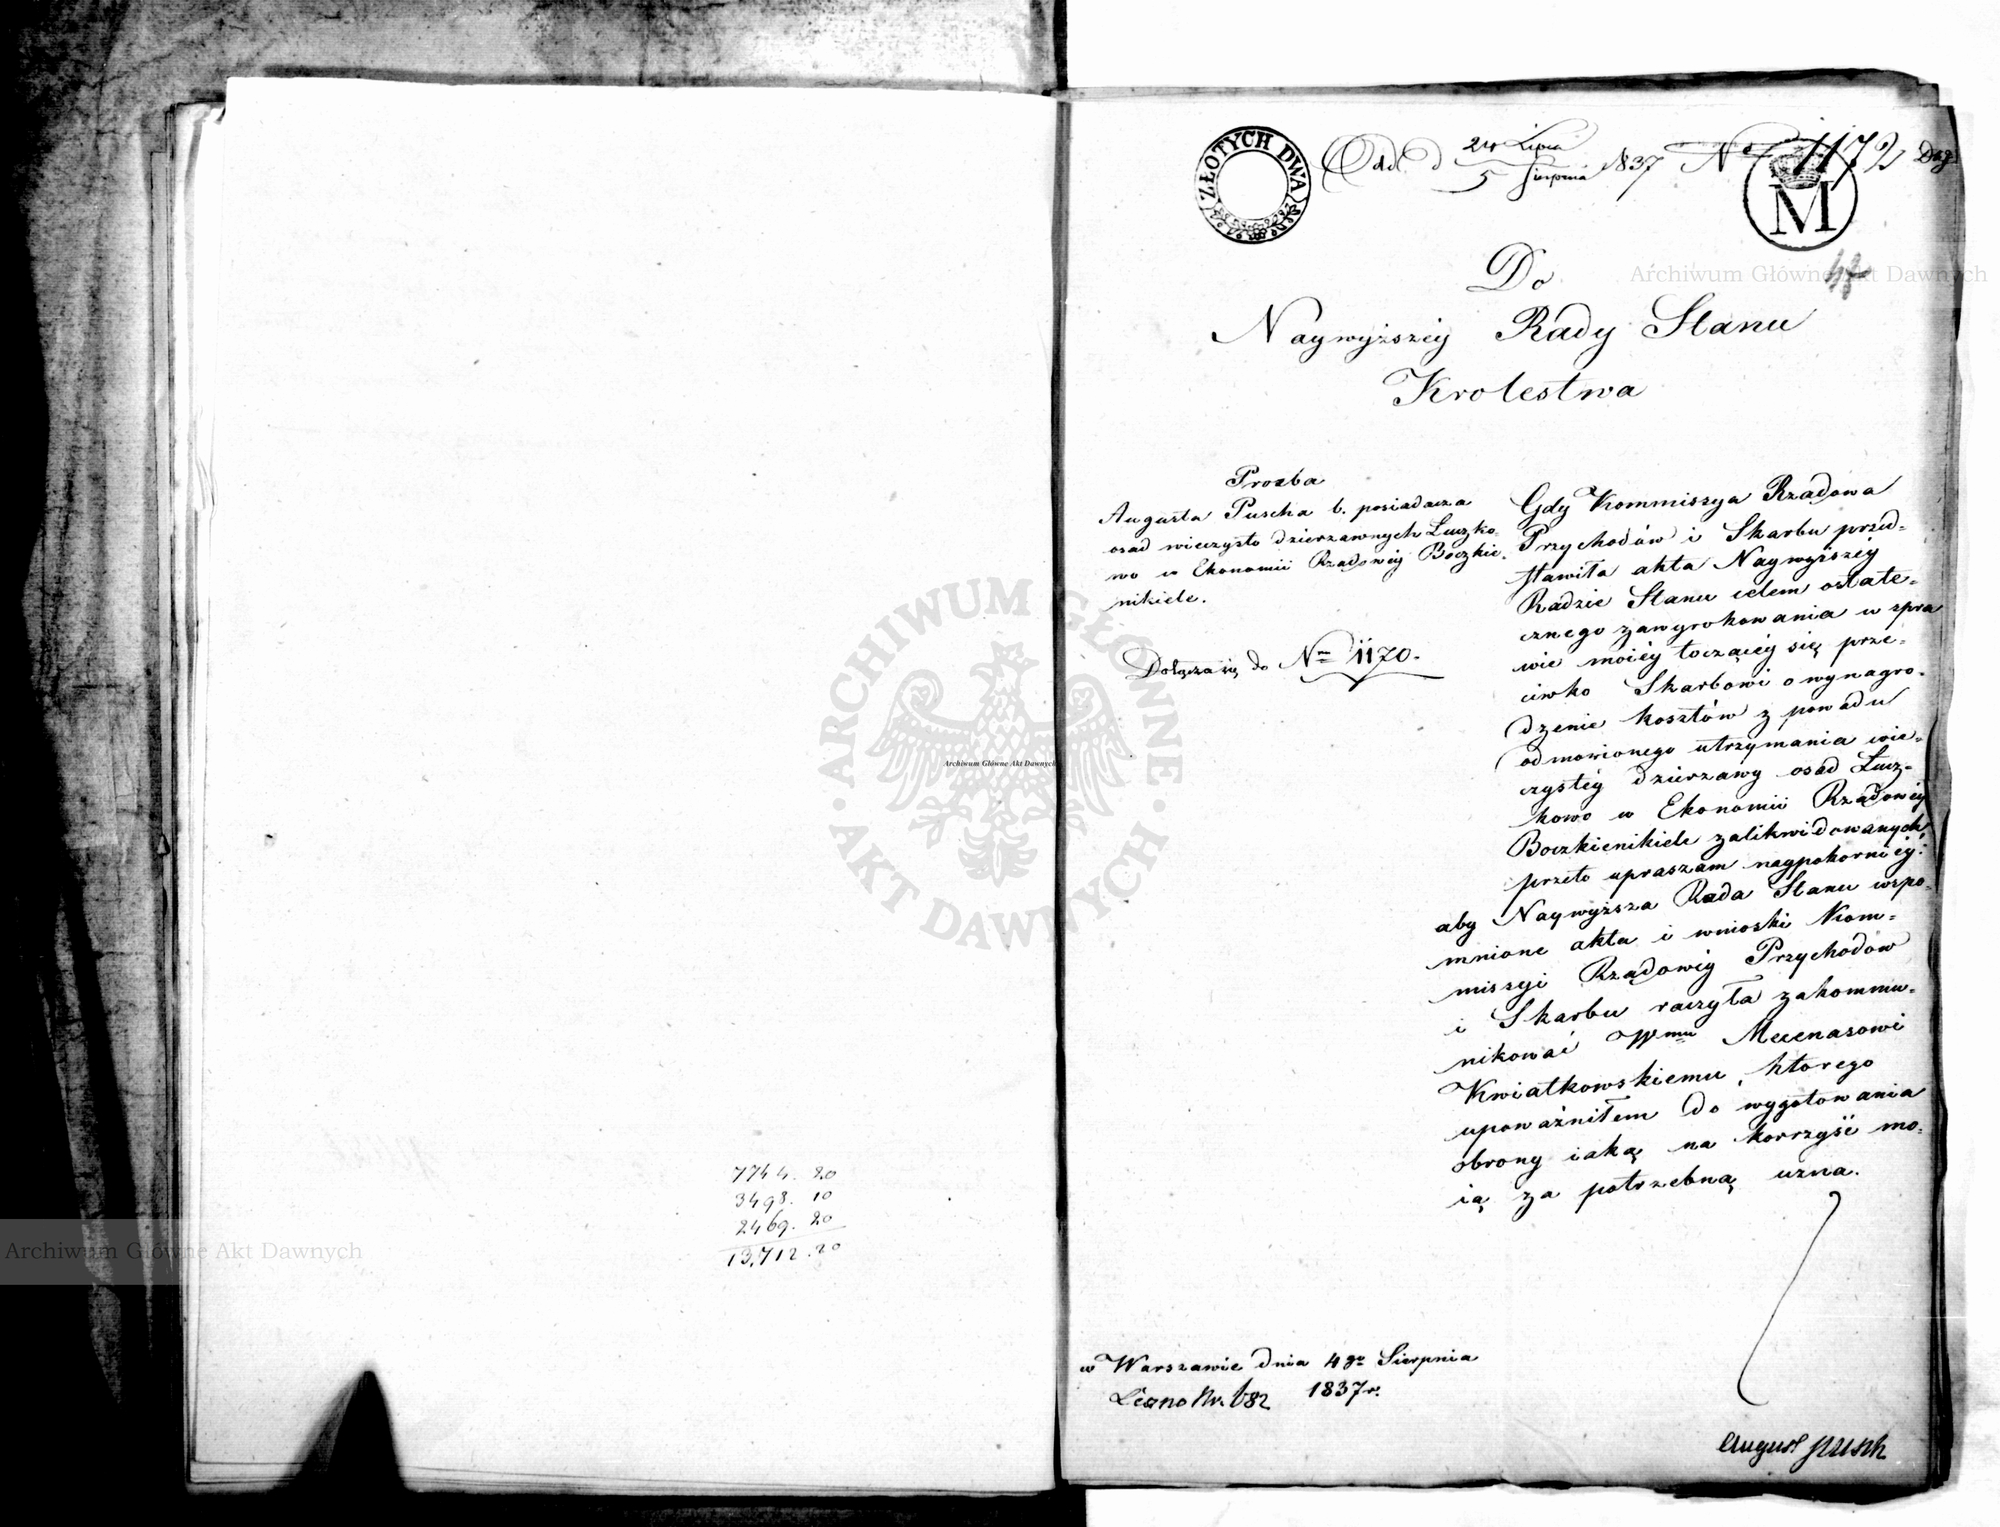 7744. 20
3498. 10
2469. 20
13,712. 20
ZŁOTYCH DWA
Odd. d 24 Lipca
5 Sierpnia 1837 No 1172
M
Do
Naywyższey Rady Stanu
Krolestwa
Prozba
Augusta Puscha b. posiadacza
osad wieczysto dzierzawnych Łuczko-
wo w Ekonomii Rządowéy Boczkie-
nikiele.
Dołącza się do Nru 1170.
Gdy Kommissya Rządowa
Przychodów i Skarbu przed-
stawiła akta Naywyższéy
Radzie Stanu celem ostate-
cznego zawyrokowania w spra
wie moiéy toczącéy się prze-
ciwko Skarbowi o wynagro-
dzenie kosztów z powodu
odmowionego utrzymania wie-
czystéy dzierzawy osad Łucz-
kowo w Ekonomii Rządowéy
Boczkienikiele zalikwidowanych,
przeto upraszam naypokorniéy:
aby Naywyższa Rada Stanu wspo-
mnione akta i wnioski Kom-
missyi Rządowéy Przychodów
i Skarbu raczyła zakommu-
nikować Wmu Mecenasowi
Kwiatkowskiemu, ktorego
upoważniłem do wygotowania
obrony iaką na korrzyść mo-
ią za potrzebną uzna.
w Warszawie dnia 4go Sierpnia
1837 r.
Leszno Nr. 682
August Pusch
Archiwum Główne Akt Dawnych
Archiwum Główne Akt Dawnych
Archiwum Główne Akt Dawnych
ARCHIWUM GŁÓWNE AKT DAWNYCH